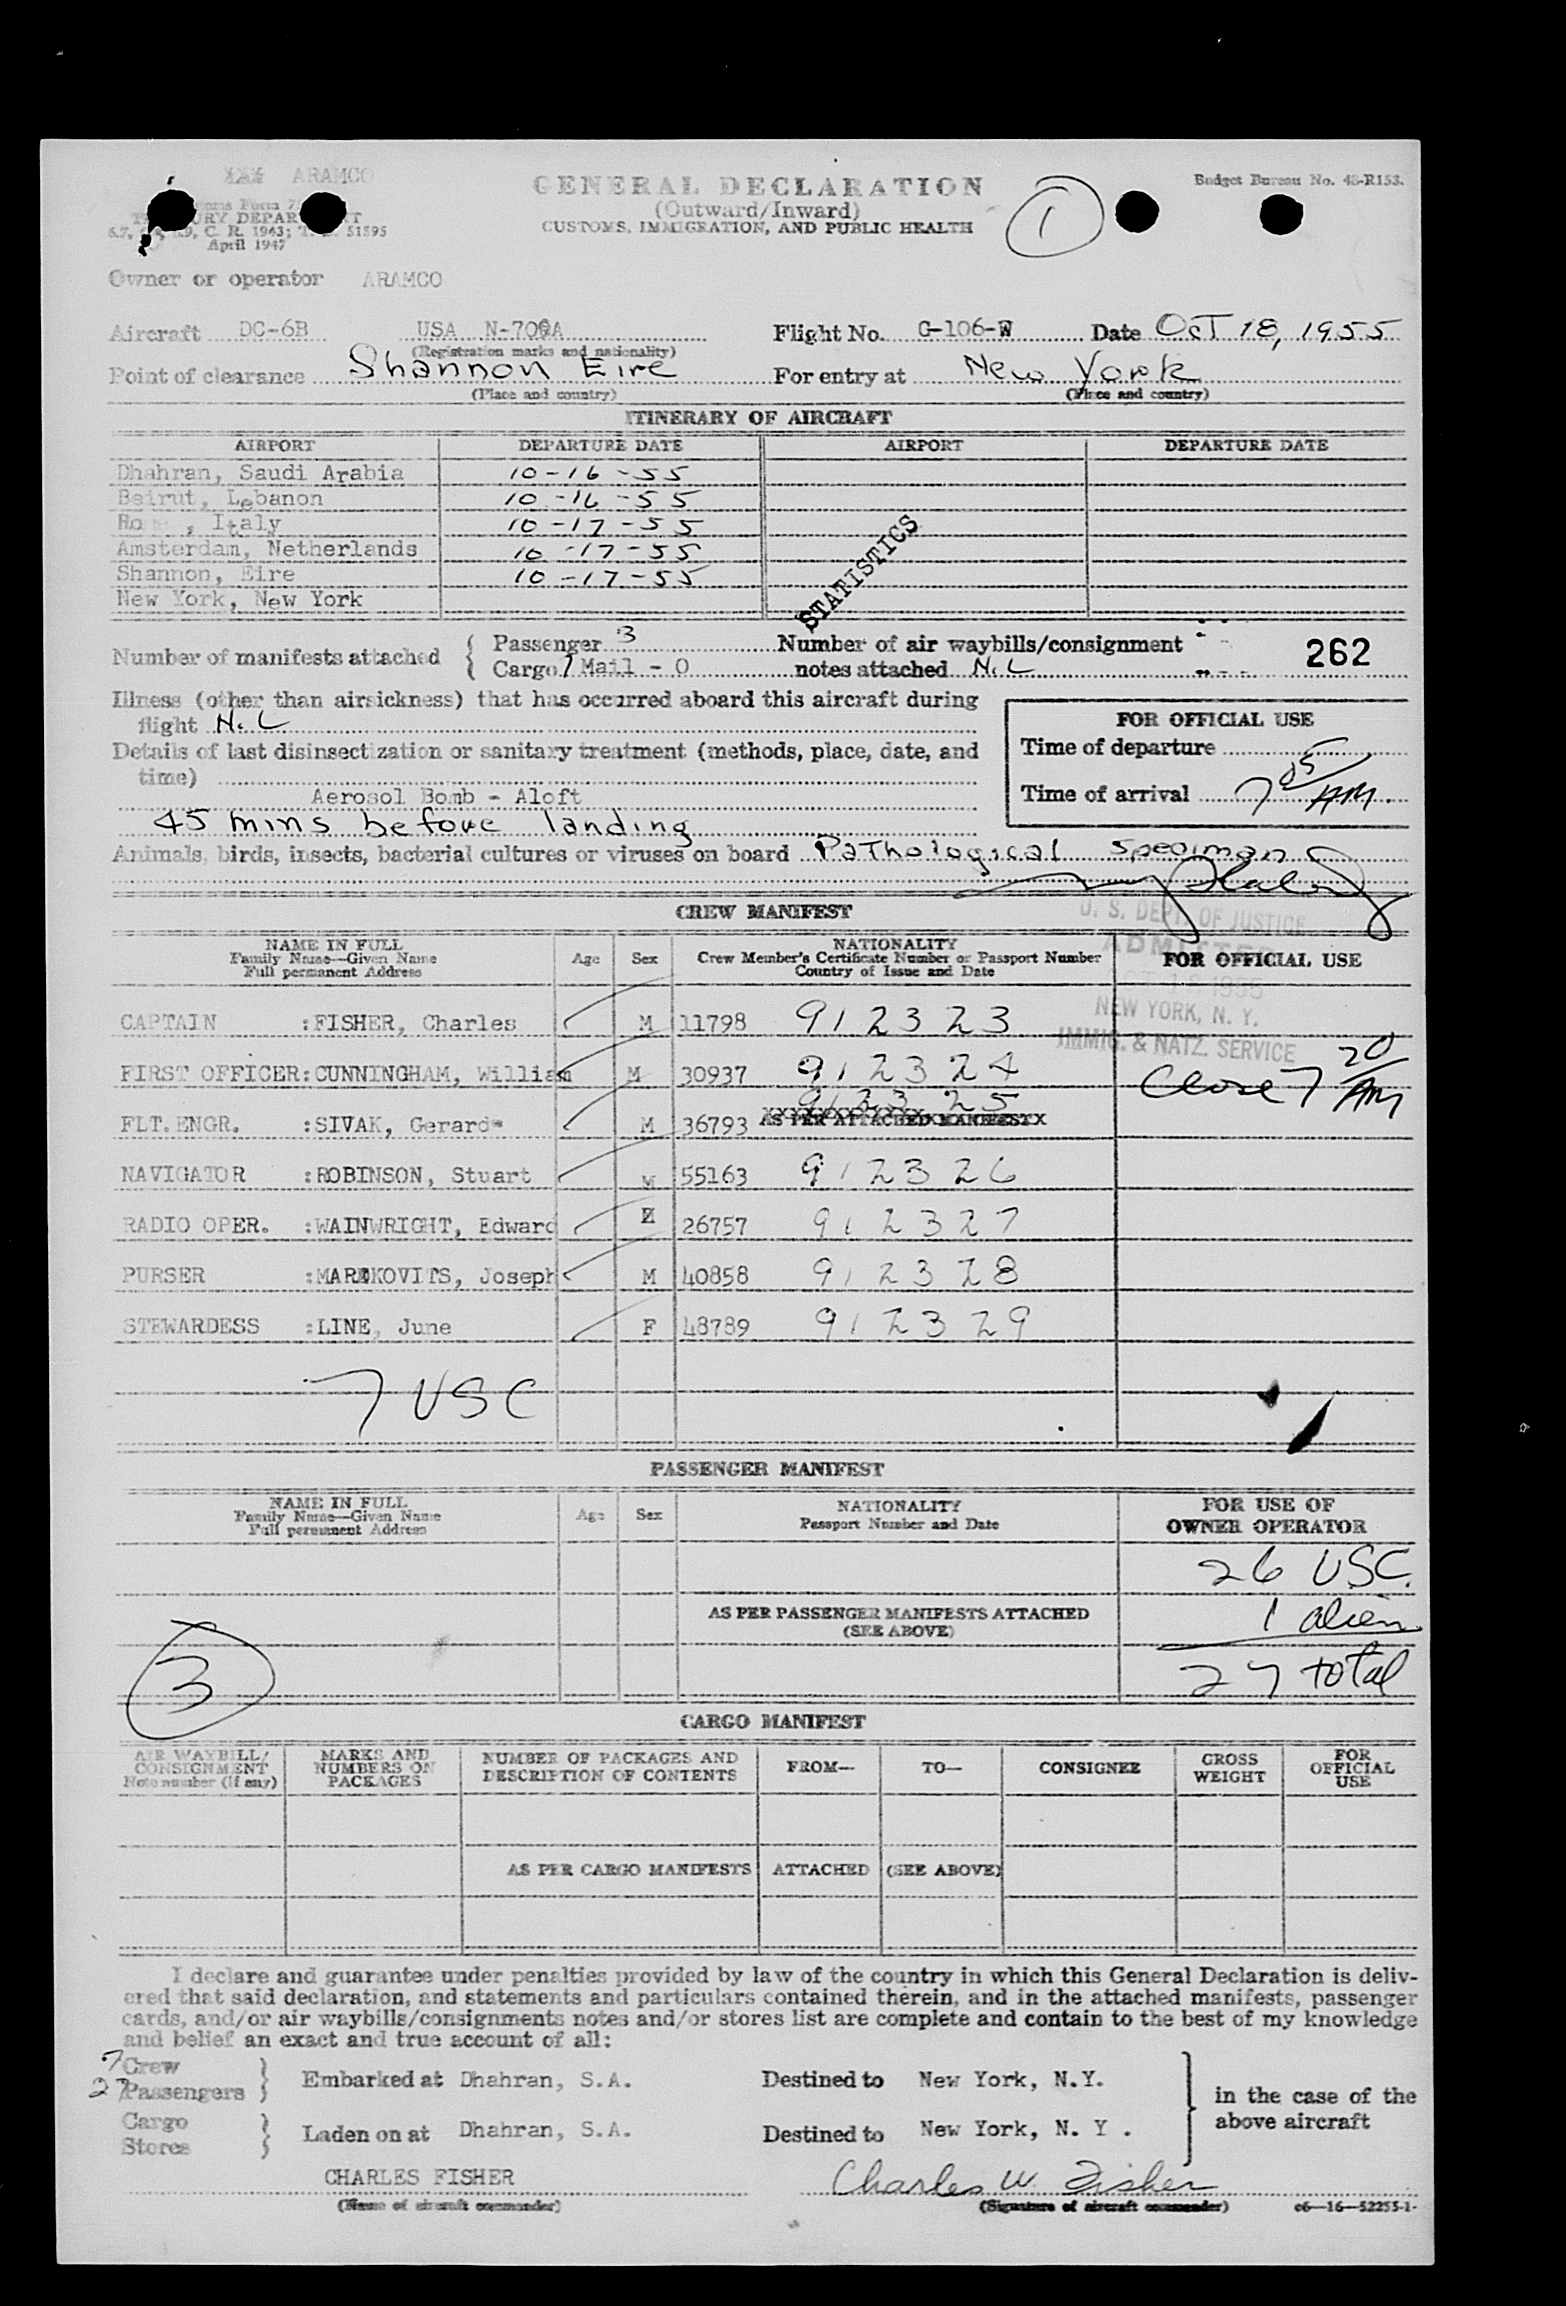 ARAMCO
GENERAL DECLARATION
(Outward/Inward)
CUSTOMS, IMMIGRATION, AND PUBLIC HEALTH
Budget Bureau No. 48-R153.
1
C. R. 1943; 51595
April 1947
Owner or operator ARAMCO
Aircraft DC-6B USA N-709A Flight No. G-106-W Date Oct 18, 1955
(Registration marks and nationality)
Point of clearance Shannon Eire For entry at New York
(Place and country) (Place and country)
ITINERARY OF AIRCRAFT
AIRPORT DEPARTURE DATE AIRPORT DEPARTURE DATE
Dhahran, Saudi Arabia 10-16-55
Beirut, Lebanon 10-16-55
Ro , Italy 10-17-55
Amsterdam, Netherlands 10-17-55
Shannon, Eire 10-17-55
New York, New York
STATISTICS
Number of manifests attached { Passenger 3 Number of air waybills/consignment
Cargo 1 Mail - 0 notes attached N.L
262
Illness (other than airsickness) that has occurred aboard this aircraft during
flight N.L
Details of last disinsectization or sanitary treatment (methods, place, date, and
time)
Aerosol Bomb - Aloft
45 mins before landing
FOR OFFICIAL USE
Time of departure
Time of arrival 7 05 AM.
Animals, birds, insects, bacterial cultures or viruses on board Pathological speciman
CREW MANIFEST
U. S. DEPT. OF JUSTICE
ADMITTED
NEW YORK, N. Y.
IMMIG. & NATZ. SERVICE
NAME IN FULL
Family Name—Given Name
Full permanent Address
Age Sex
NATIONALITY
Crew Member's Certificate Number or Passport Number
Country of Issue and Date
FOR OFFICIAL USE
CAPTAIN :FISHER, Charles M 11798 912323
FIRST OFFICER:CUNNINGHAM, William M 30937 912324
Close 7 20 AM
FLT.ENGR. :SIVAK, Gerard M 36793 912325
AS PER ATTACHED MANIFEST
NAVIGATOR :ROBINSON, Stuart M 55163 912326
RADIO OPER. :WAINWRIGHT, Edward M 26757 912327
PURSER :MARKOVITS, Joseph M 40858 912328
STEWARDESS :LINE, June F 48789 912329
7 USC
PASSENGER MANIFEST
NAME IN FULL
Family Name—Given Name
Full permanent Address
Age Sex
NATIONALITY
Passport Number and Date
FOR USE OF
OWNER OPERATOR
26 USC.
AS PER PASSENGER MANIFESTS ATTACHED
(SEE ABOVE)
1 alien
27 total
3
CARGO MANIFEST
AIR WAYBILL/
CONSIGNMENT
Note number (if any)
MARKS AND
NUMBERS ON
PACKAGES
NUMBER OF PACKAGES AND
DESCRIPTION OF CONTENTS
FROM— TO— CONSIGNEE
GROSS
WEIGHT
FOR
OFFICIAL
USE
AS PER CARGO MANIFESTS ATTACHED (SEE ABOVE)
I declare and guarantee under penalties provided by law of the country in which this General Declaration is deliv-
ered that said declaration, and statements and particulars contained therein, and in the attached manifests, passenger
cards, and/or air waybills/consignments notes and/or stores list are complete and contain to the best of my knowledge
and belief an exact and true account of all:
7 Crew
27 Passengers } Embarked at Dhahran, S.A. Destined to New York, N.Y.
in the case of the
above aircraft
Cargo
Stores } Laden on at Dhahran, S.A. Destined to New York, N. Y .
CHARLES FISHER Charles W. Fisher
(Name of aircraft commander) (Signature of aircraft commander) c6—16—52255-1